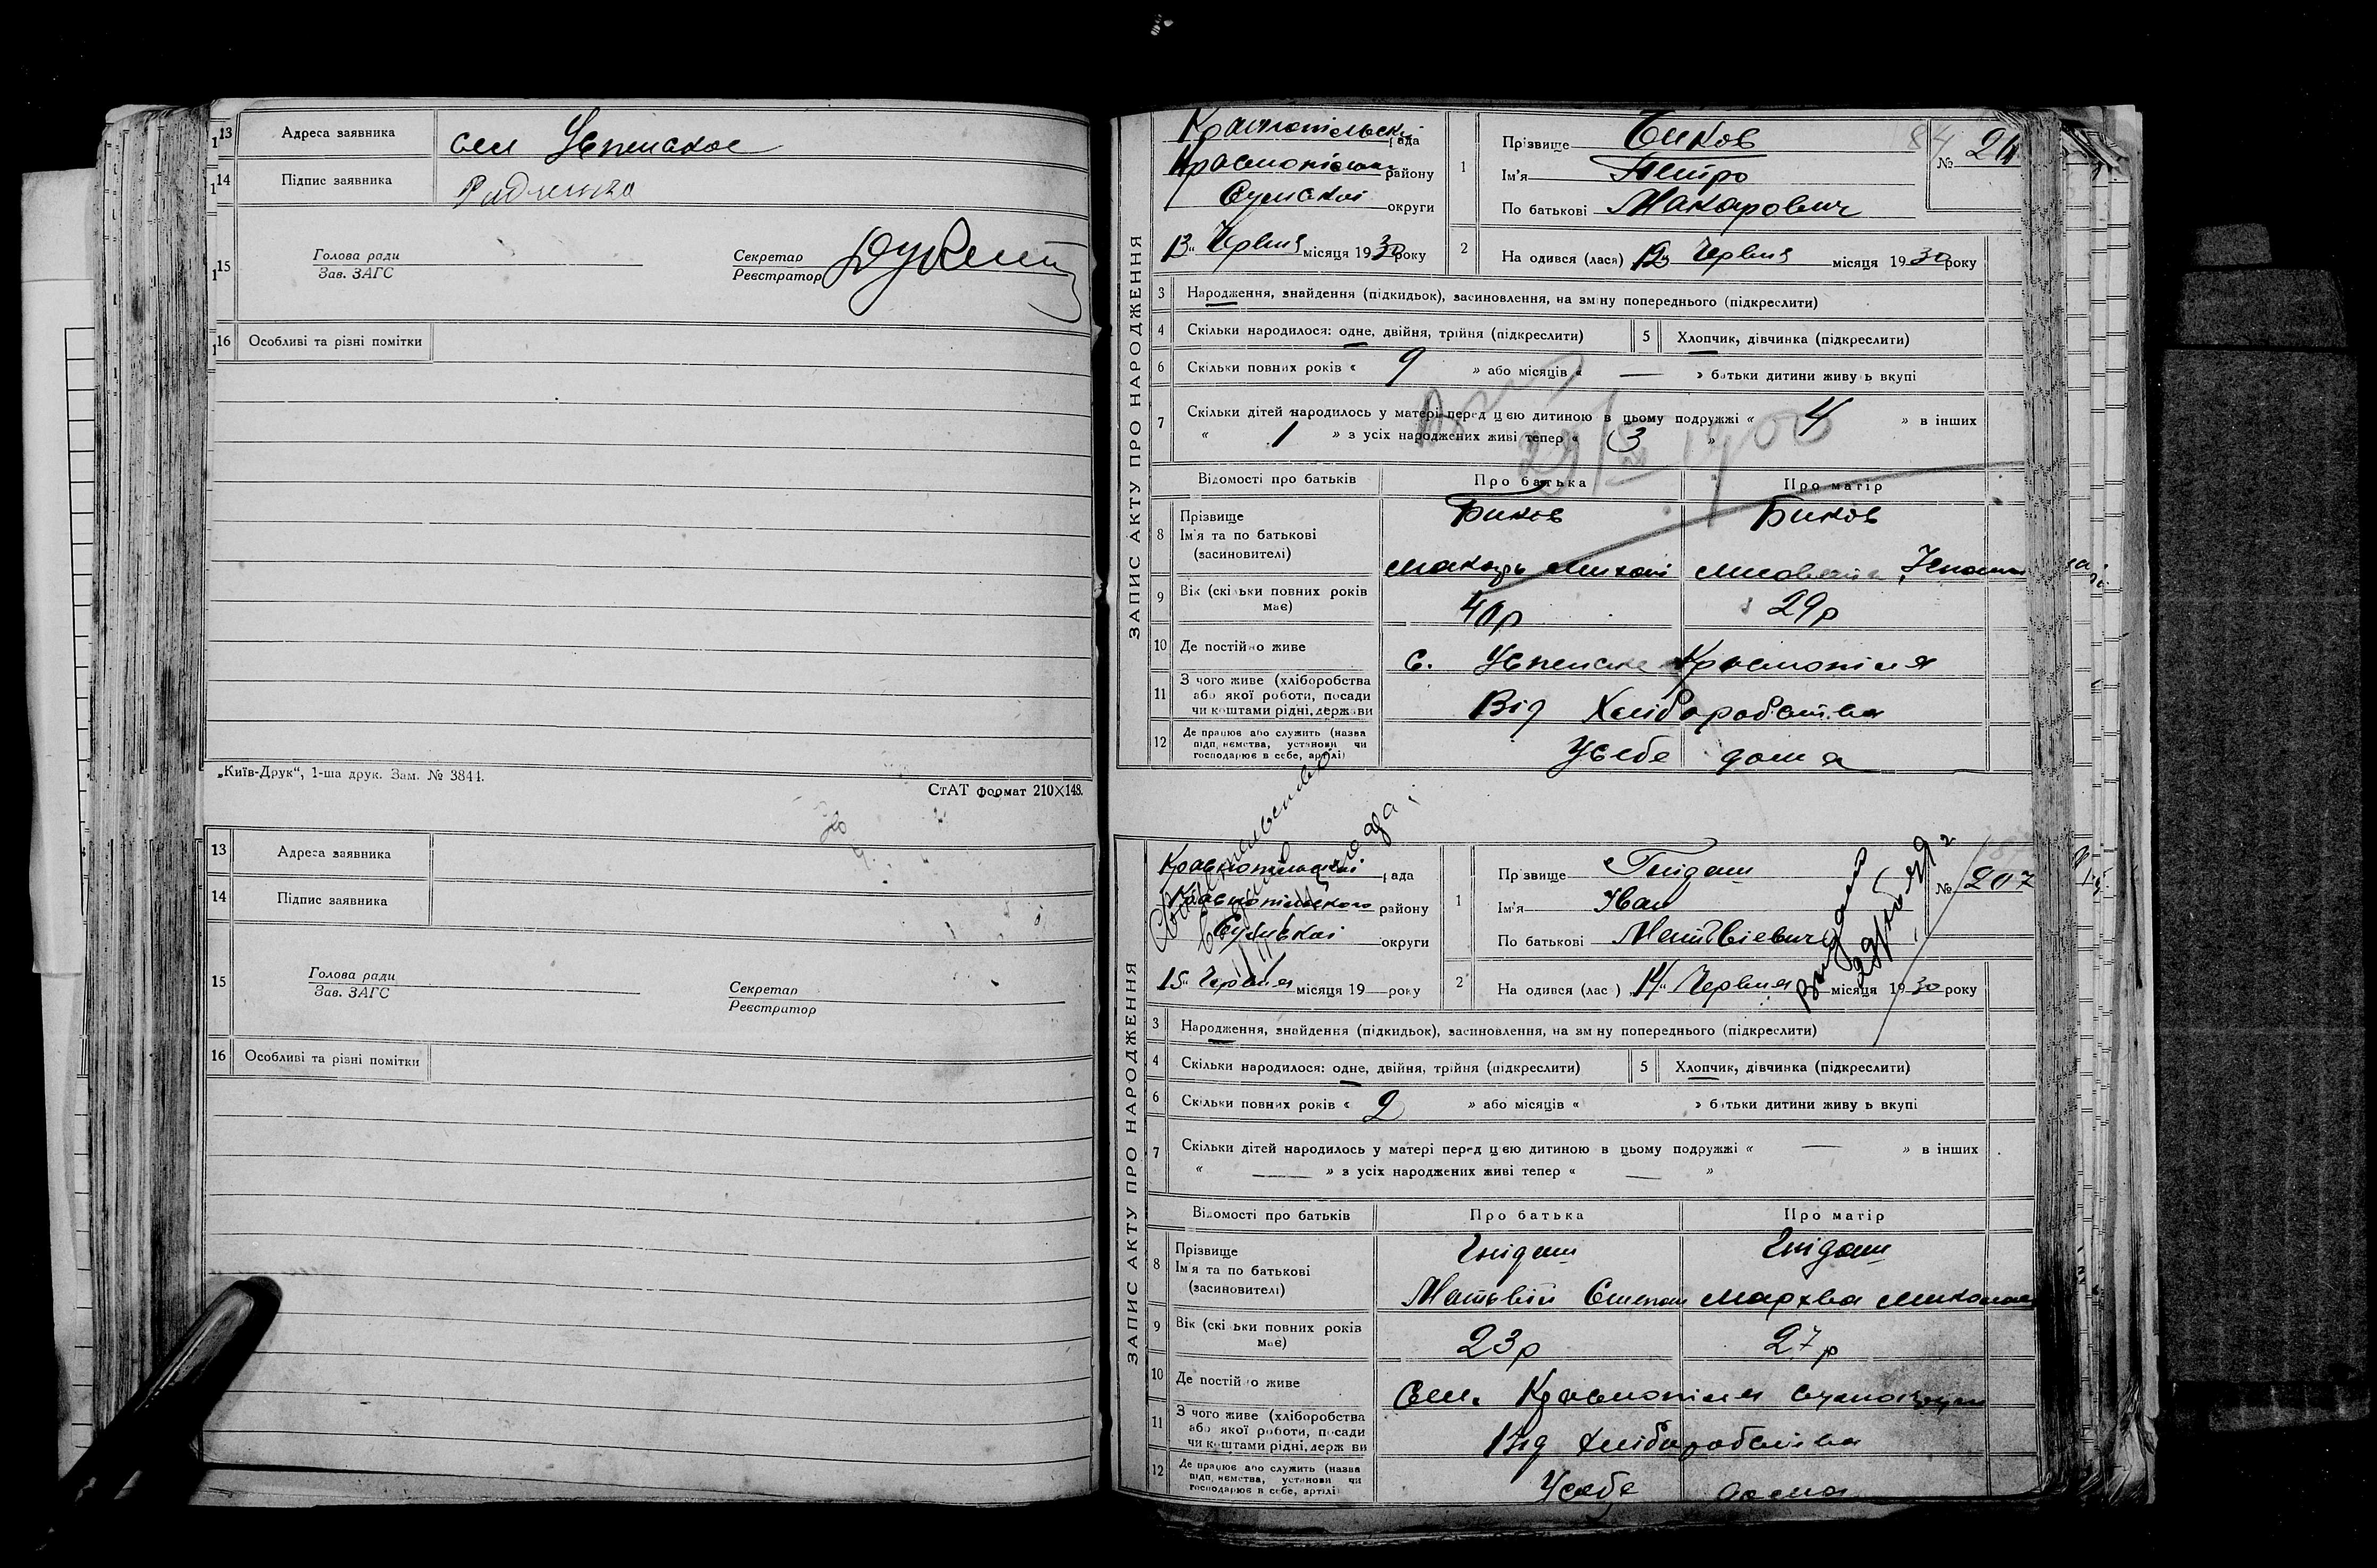 13 Адреса заявника сел Успенское
14 Підпис заявника
15 Голова ради
Зав. ЗАГС
Секретар
Реєстратор
16 Особливі та різні помітки
„Київ-Друк“, 1-ша друк. Зам. № 3844.
СтАТ формат 210×148.
13 Адреса заявника
14 Підпис заявника
15 Голова ради
Зав. ЗАГС
Секретар
Реєстратор
16 Особливі та різні помітки
ЗАПИС АКТУ ПРО НАРОДЖЕННЯ
рада
району
Сумської округи
13 Червня місяця 1930 року
1 Прізвище Биков
Ім'я Петро
По батькові Макарович
84
№
2 На одився (лася) Червня місяця 1930 року
3 Народження, знайдення (підкидьок), засиновлення, на зміну попереднього (підкреслити)
4 Скільки народилося: одне, двійня, трійня (підкреслити)
5 Хлопчик, дівчинка (підкреслити)
6 Скільки повних років « 9 » або місяців « — » батьки дитини живу ь вкупі
7 Скільки дітей народилось у матері перед цею дитиною в цьому подружжі « 4 » в інших
« 1 » з усіх народжених живі тепер « 3 »
Відомості про батьків Про батька Про матір
8 Прізвище Биков Биков
Ім'я та по батькові
(засиновителі) Макарь
9 Вік (скільки повних років має) 29р
10 Де постійно живе с. Успенське Краснопілля
11 З чого живе (хліборобства
або якої роботи, посади
чи коштами рідні, держави Від Хліборобства
12 Де працює або служить (назва
підп иємства, установи чи
господарює в себе, артілі) Усебе дома
ЗАПИС АКТУ ПРО НАРОДЖЕННЯ
Краснопільської рада
Краснопільского району
Сумської округи
15 Червня місяця 19 — року
1 Прізвище Гнідаш
Ім'я Иван
По батькові Матвієвич
№ 207
2 На одився (лас ) 14 Червня місяця 1930 року
3 Народження, знайдення (підкидьок), засиновлення, на зміну попереднього (підкреслити)
4 Скільки народилося: одне, двійня, трійня (підкреслити)
5 Хлопчик, дівчинка (підкреслити)
6 Скільки повних років « 2 » або місяців « » батьки дитини живу ь вкупі
7 Скільки дітей народилось у матері перед цею дитиною в цьому подружжі « — » в інших
« — » з усіх народжених живі тепер « — »
Відомості про батьків Про батька Про матір
8 Прізвище Гнідаш Гнідаш
Ім'я та по батькові
(засиновителі) Матьвій Степан Мархва
9 Вік (скі ьки повних років має) 23р 27р
10 Де постій о живе Сел. Краснопілля
11 З чого живе (хліборобства
або якої роботи, посади
чи коштами рідні, держ ви Від хліборобства
12 Де працює або служить (назва
підп иємства, установи чи
господарює в себе, артілі Усебе дома